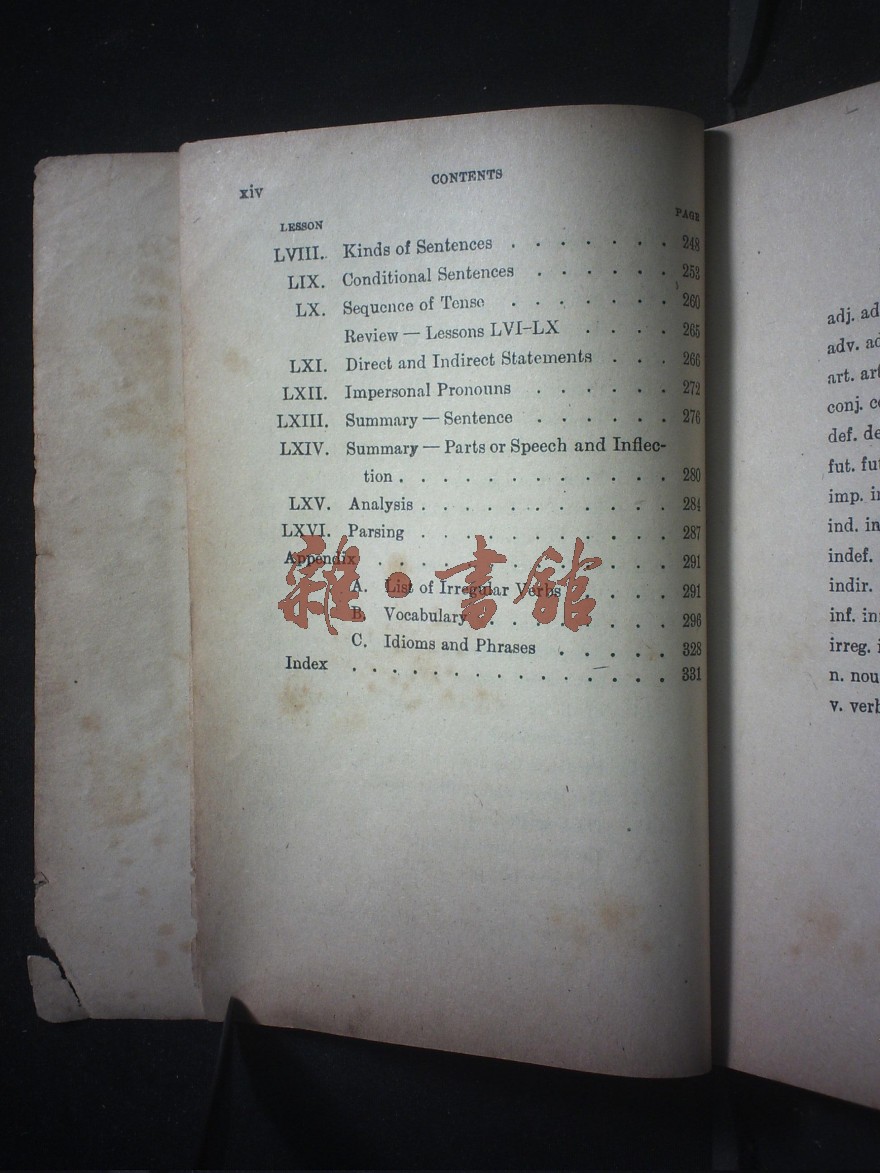 xiv
CONTENTS
LESSON PAGE
LVIII. Kinds of Sentences . . . . . . . 248
LIX. Conditional Sentences . . . . . . 253
LX. Sequence of Tense . . . . . . . 260
Review — Lessons LVI–LX . . . . 265
LXI. Direct and Indirect Statements . . . 266
LXII. Impersonal Pronouns . . . . . . 272
LXIII. Summary — Sentence . . . . . . 276
LXIV. Summary — Parts or Speech and Inflec-
tion . . . . . . . . . . . . 280
LXV. Analysis . . . . . . . . . . . 284
LXVI. Parsing . . . . . . . . . . . 287
Appendix . . . . . . . . . . . . 291
A. List of Irregular Verbs . . . . 291
B. Vocabulary . . . . . . . . 296
C. Idioms and Phrases . . . . . 328
Index . . . . . . . . . . . . . 331
雜·書館
adj. ad
adv. ad
art. art
conj. co
def. de
fut. fut
imp. i
ind. in
indef.
indir.
inf. in
irreg. i
n. nou
v. verb